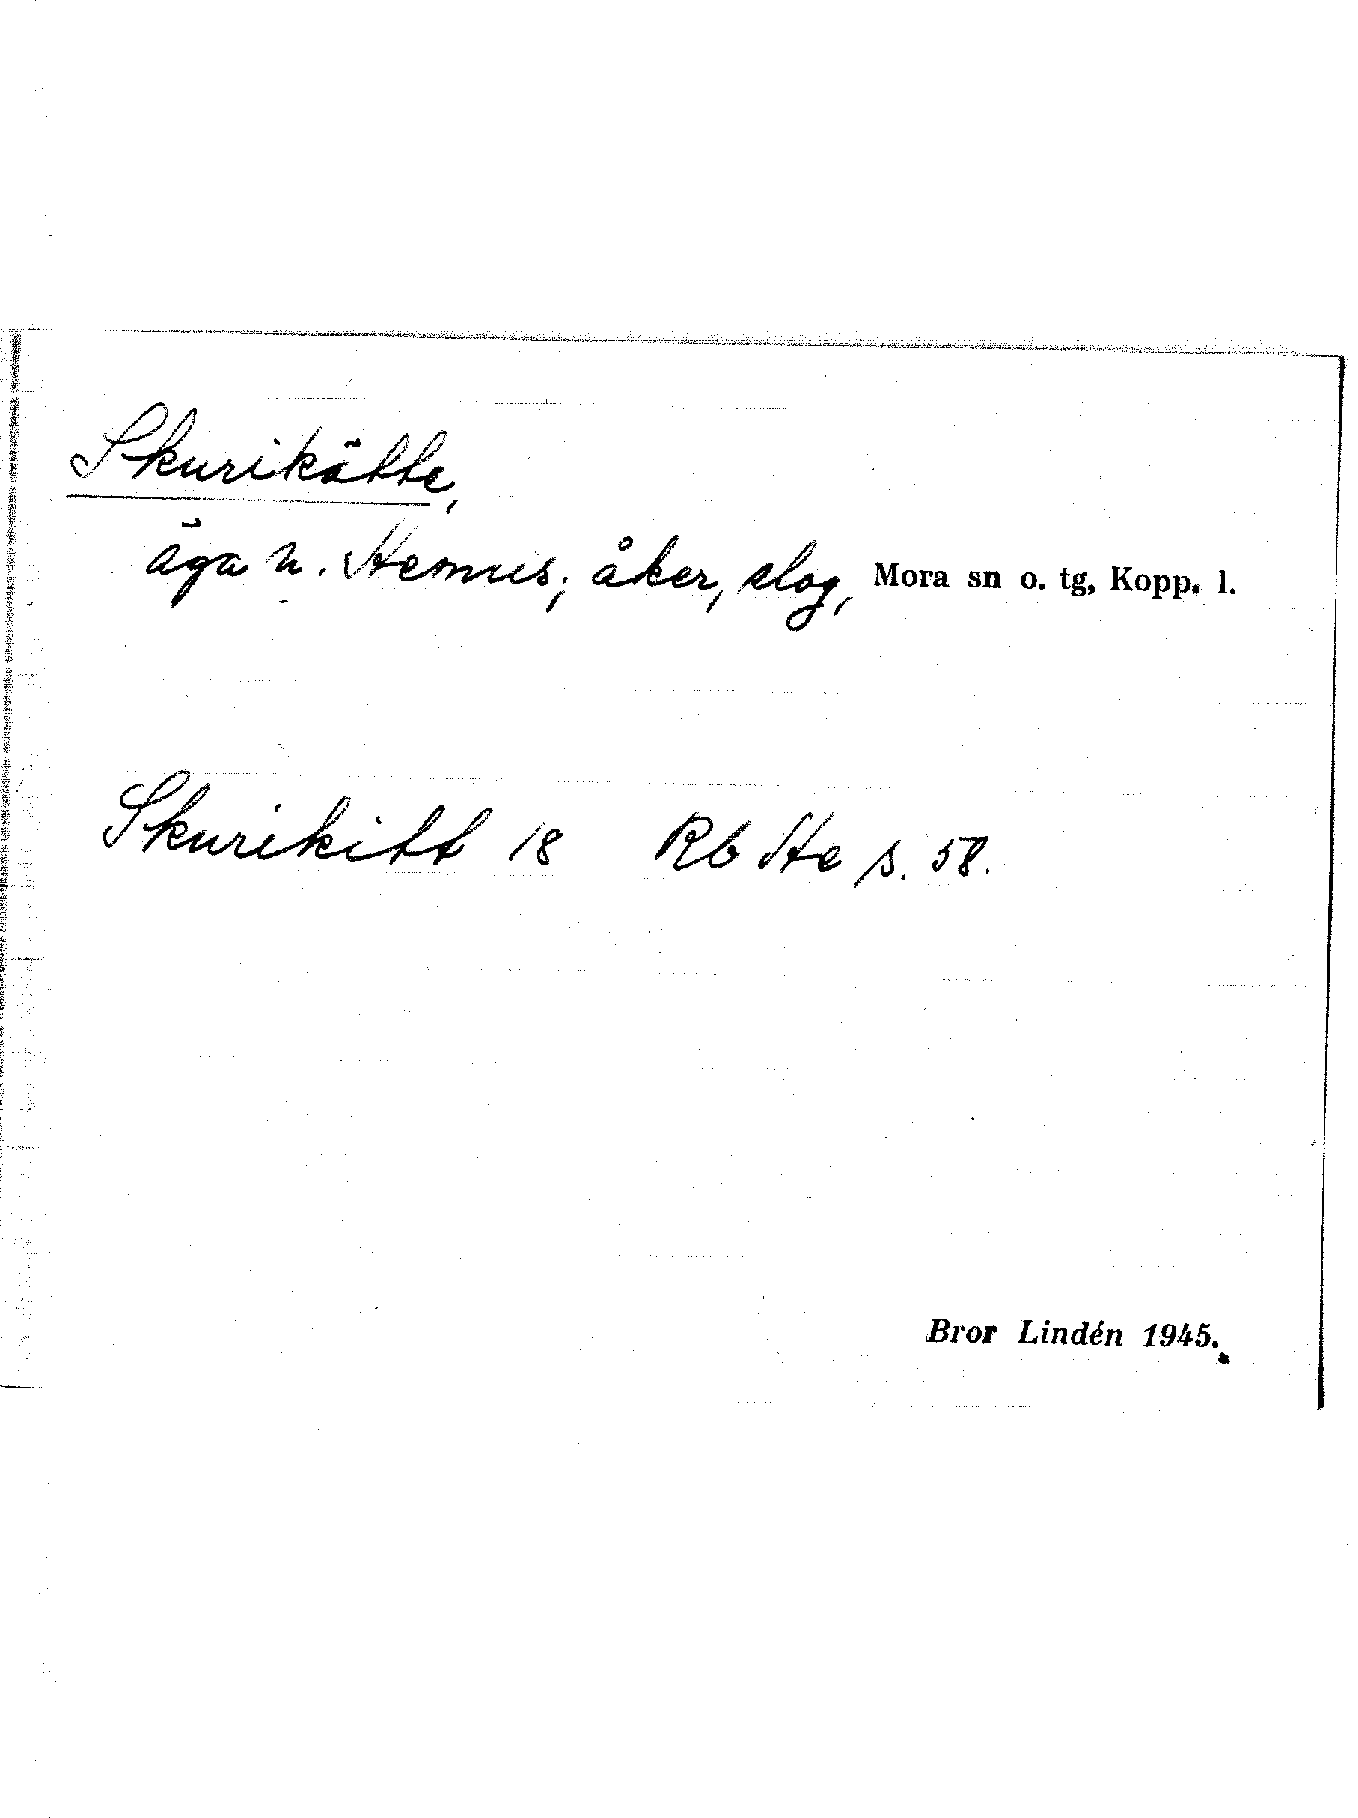 Skurikätte,
äga n. Hemus; åker, slog, Mora sn o. tg, Kopp. l.
Skurikitt 18 Rb He s. 58.
Bror Lindén 1945.